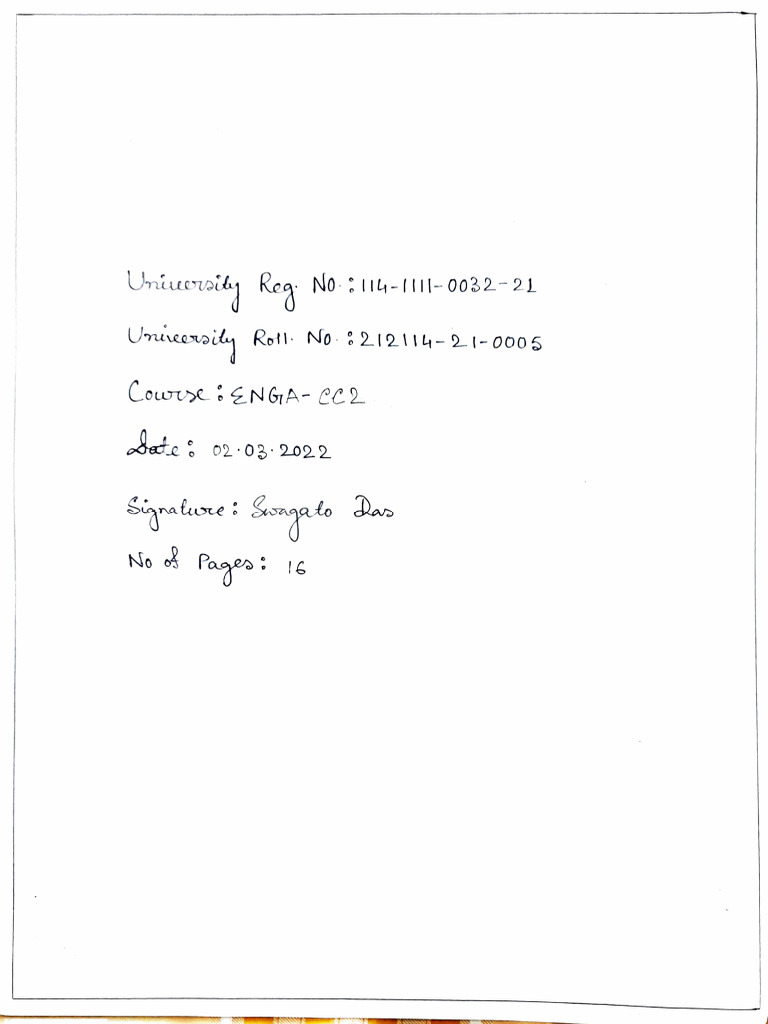 University Reg. No.: 114-1111-0032-21
University Roll. No.: 212114-21-0005
Course: ENGA-CC2
Date: 02.03.2022
Signature: Swagato Das
No of Pages: 16